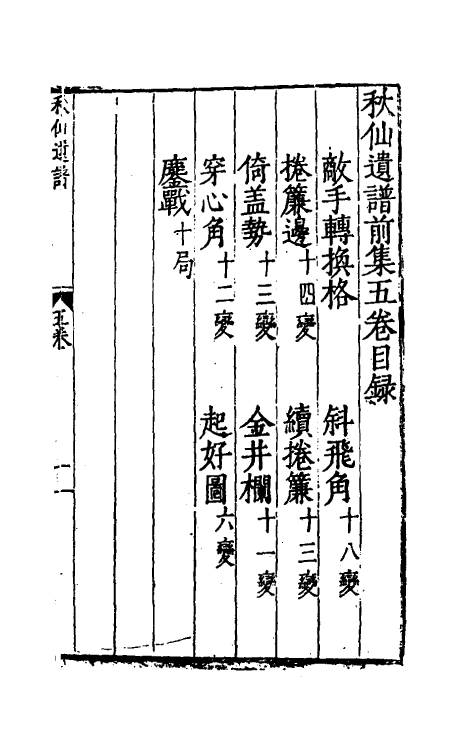 秋仙遺譜前集五卷目録
敵手轉換格 斜飛角十八變
捲簾邊十四變 續捲簾十三變
倚盖勢十三變 金井欄十一變
穿心角十二變 起好圖六變
鏖戰十局
秋仙遺譜 五卷 一